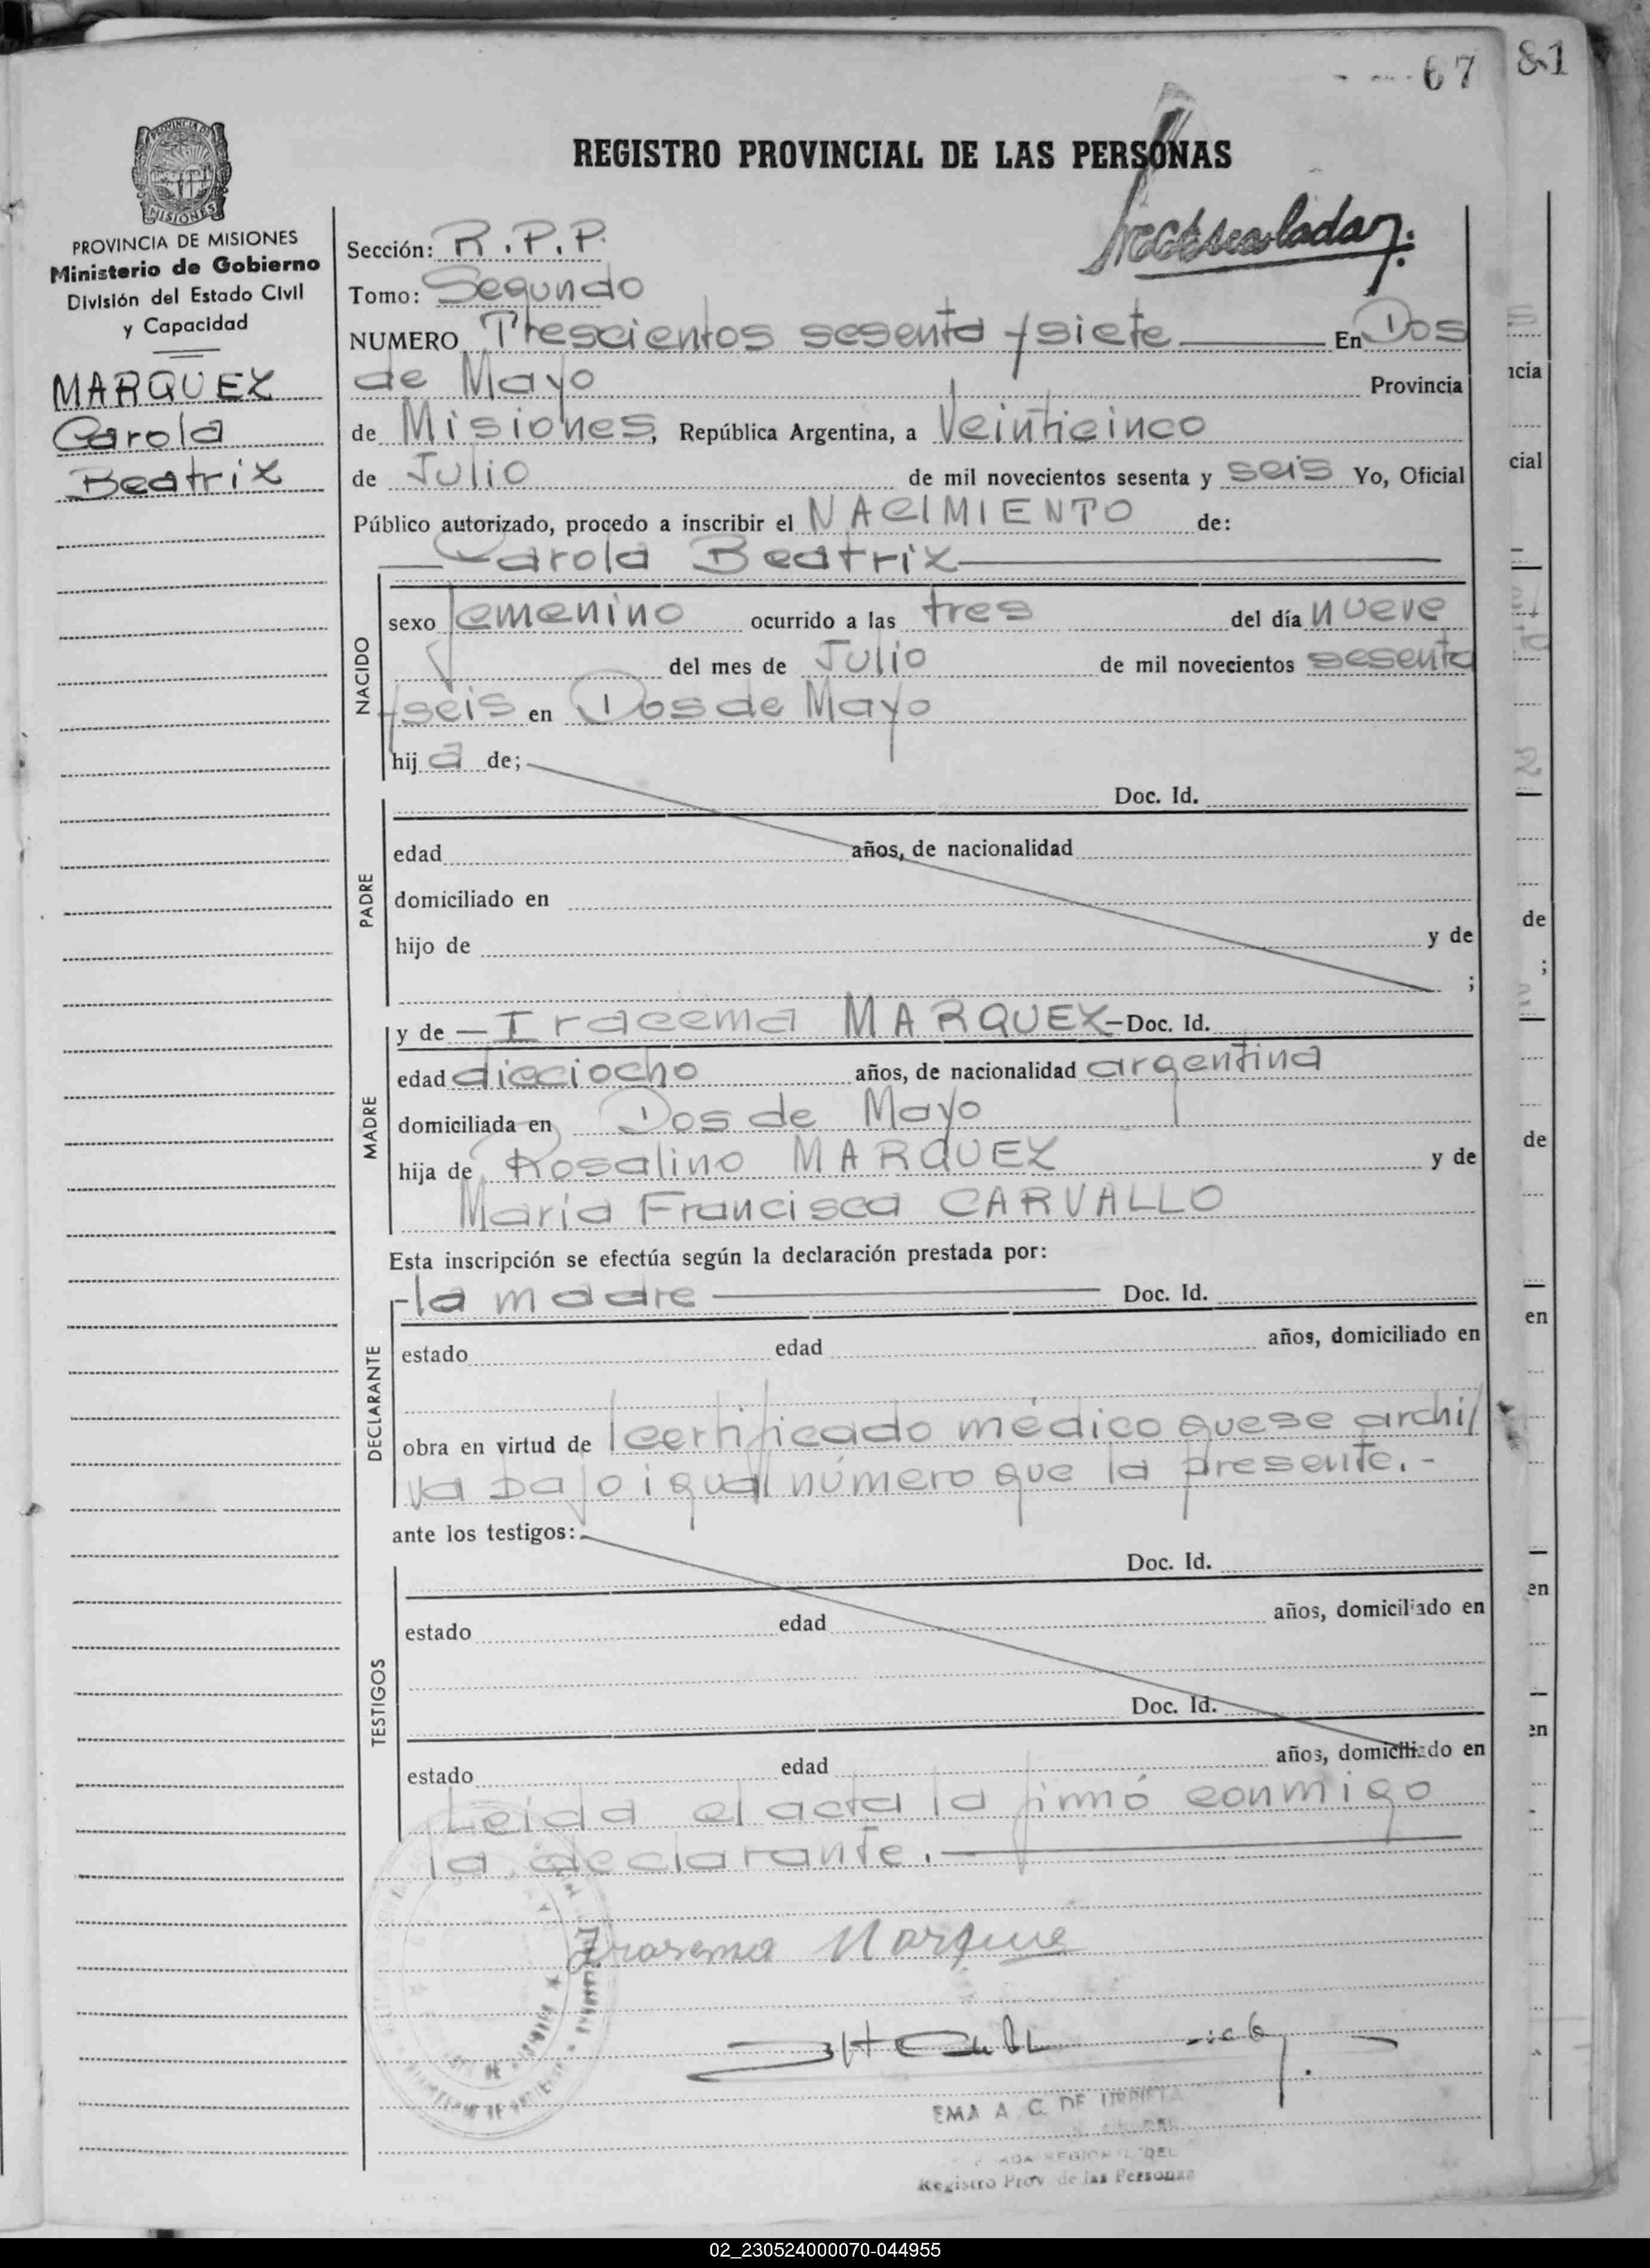 67 81
REGISTRO PROVINCIAL DE LAS PERSONAS
PROVINCIA DE MISIONES
MISIONES
PROVINCIA DE MISIONES
Ministerio de Gobierno
División del Estado Civil
y Capacidad
MARQUEZ
Carola
Beatriz
Sección: R.P.P.
Tomo: Segundo
NUMERO Trescientos sesenta y siete En Dos
de Mayo Provincia
de Misiones, República Argentina, a Veinticinco
de Julio de mil novecientos sesenta y seis Yo, Oficial
Público autorizado, procedo a inscribir el NACIMIENTO de:
Carola Beatriz
NACIDO
sexo femenino ocurrido a las tres del día nueve
del mes de Julio de mil novecientos sesenta
y seis en Dos de Mayo
hij a de;
PADRE
Doc. Id.
edad años, de nacionalidad
domiciliado en
hijo de y de
;
MADRE
y de - Iracema MARQUEZ - Doc. Id.
edad dieciocho años, de nacionalidad argentina
domiciliada en Dos de Mayo
hija de Rosalino MARQUEZ y de
María Francisca CARVALLO
Esta inscripción se efectúa según la declaración prestada por:
DECLARANTE
-la madre Doc. Id.
estado edad años, domiciliado en
obra en virtud de certificado médico que se archi/
va bajo igual número que la presente.-
ante los testigos:
TESTIGOS
Doc. Id.
estado edad años, domiciliado en
Doc. Id.
estado edad años, domiciliado en
Leída el acta la firmó conmigo
la declarante.
EMA A. C. DE
Registro Prov de las Personas
02_230524000070-044955